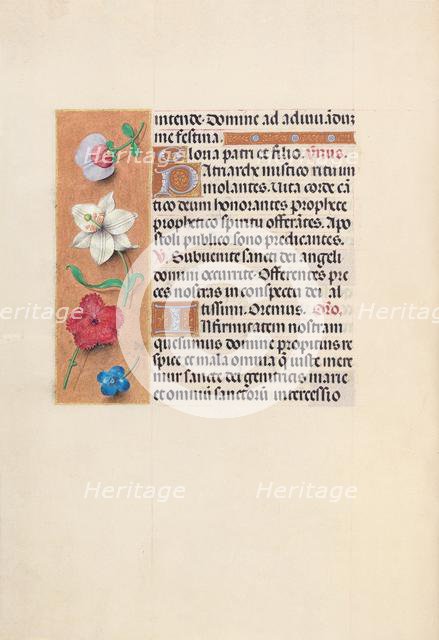 intende. Domine ad adiuuādūz
me festina.
Gloria patri et filio. Vrsus.
Patriarche mistico ritu im
molantes. Uita corde cā
tico deum honorantes prophete
prophetico spiritu offerātes. Apo
stoli publico sono predicantes.
V. Subuenite sancti dei angeli
domini occurrite. Offerentes pre
ces nostras in conspectu dei al
tissimi. Oremus. Oro.
Infirmitatem nostram
quesumus domine propitius re
spice et mala omnia q̄ iuste mere
mur sancte dei genitricis marie
et omniū sanctorū intercessio
Heritage
Heritage
Heritage
Heritage
Heritage
Heritage